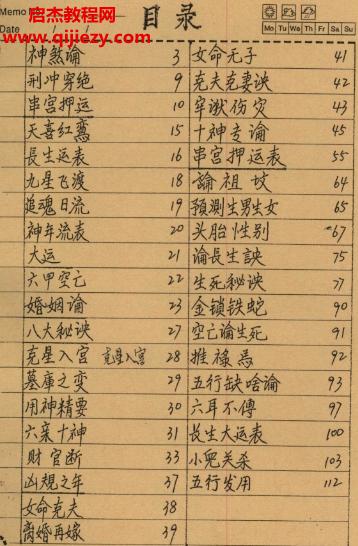 Memo
Date
启杰教程网
www.qijiezy.com
目录
Mo Tu We Th Fr Sa Su
神煞论 3
刑冲穿绝 9
串宫押运 10
天喜红鸾 15
長生运表 16
九星飞渡 18
追魂日流 19
神年流表 20
大运 21
六甲空亡 22
婚姻论 23
八大秘诀 27
克星入宫 克星入宫 28
墓庫之变 29
用神精要 30
六亲十神 31
财官断 33
凶規之年 37
女命克夫 38
离婚再嫁 39
女命无子 41
克夫克妻诀 42
牢狱伤灾 43
十神专论 45
串宫押运表 55
論祖坟 64
預測生男生女 65
头胎性别 67
論長生訣 75
生死秘诀 77
金锁铁蛇 90
空亡论生死 91
推禄馬 92
五行缺啥論 93
六耳不傅 97
长生大运表 100
小兜关杀 103
五行发用 112